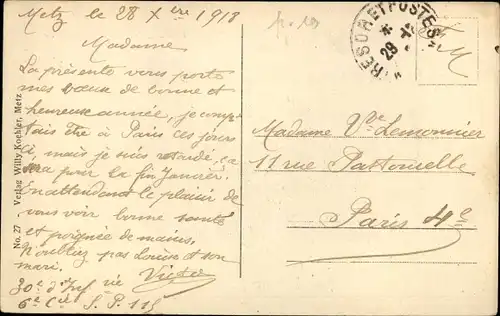 Metz le 28 Xbre 1918
Madame
La présente vous porte
mes vœux de bonne et
heureuse année, je comp
tais être à Paris ces jours
ci mais je suis retardé, ça
sera pour la fin Janvier.
En attendant le plaisir de
vous voir bonne santé
et poignée de mains.
N'oubliez pas Louise et son
mari.
Victor
30e d'Inf rie
6e Cie S. P. 115
No. 27 Verlag Willy Koehler, Metz
TRESOR ET POSTES
28
F M
Madame Vve Lemonnier
11 rue Pastourelle
Paris 4e